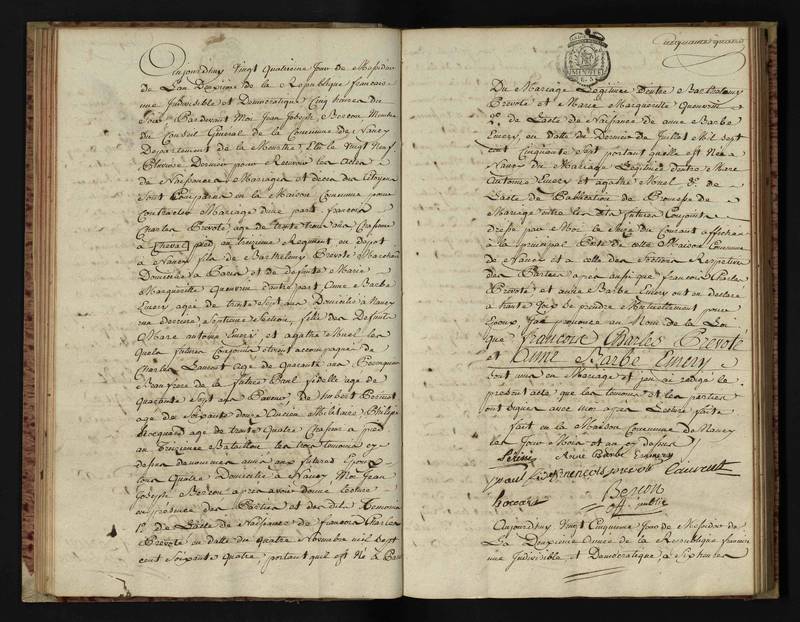 Aujourdhuy Vingt Quatrieme Jour de Messidor
de Lan Deuxieme de la Republique francai-
-se Indivisible et Democratique Cinq heures du
Soir Pardevant Moi Jean Joseph Benon Membre
du Conseil General de la Commune de Nancy
Departement de la Meurthe, Elu le Vingt Neuf
Pluviose Dernier pour Recevoir les Actes
de Naissances Mariages et deces des Citoyens
Sont Comparus en la Maison Commune pour
Contracter Mariage dune part francois
Charles Prevoté, age de trente ans Chasseur
a Cheval pied, au treizieme Regiment en depot
a Nancy fils de Barthelemy Prevoté Marchand
Domicilié a Paris et de defunte Marie
Marguerite d'autre part Anne Barbe
Emery, agée de trente Sept ans Domiciliée a Nancy
rue derriere, Septieme Section, fille des Defunts
Marc antoine Emery, et agathe Muel les
quels futurs Conjoints etoient accompagnés de
Charles Laurent age de Quarante ans
Beaufrere de la future Paul fidelle age de
quarante Sept ans de
age de Soixante douze Ancien Militaire, Philippe
age de trente quatre Chasseur a pied
au treizieme Bataillon les trois temoins cy
dessus denommés amis aux futures Epoux
tous Quatre Domiciliés a Nancy, Moi Jean
Joseph Benon apres avoir donné Lecture
en presence des Parties et des dits temoins
1º. de Lacte de Naissance de francois Charles
Prevoté en datte du quatre Novembre mil Sept
cent Soixante quatre, portant quil est Né a Paris
Cinquante quatre
Du Mariage Legitime Dentre Barthelemy
Prevoté et Marie Marguerite
2º. de Lacte de Naissance de anne Barbe
Emery, en datte du Dernier de Juillet Mil Sept
cent Cinquante Sept portant quelle est Née a
Nancy du Mariage Legitime dentre Marc
Antoine Emery et agathe Muel 3º. de
Lacte de Publication de Promesse de
Mariage entre les dits futurs Conjoints
dressé par Moi le du Courant affiché
a la principal Porte de cette Maison Commune
de Nancy et a celle des Sections Respectives
des Parties apres aussi que francois Charles
Prevoté et anne Barbe Emery ont eu declaré
a haute Voix Se prendre Mutuellement pour
Epoux, Jai prononcé au Nom de la Loi
que francois Charles Prevoté
et Anne Barbe Emery
Sont unis en Mariage et jen ai redigé le
présent acte que les temoins et les parties
ont signés avec moi apres Lecture faite
fait en la Maison Commune de Nancy
les Jour Mois et an cy dessus
Anne Barbe Emery
paul fidel francois prevoté Laurent
Benon
off. public
Aujourdhuy Vingt Cinquieme Jour de Messidor de
La Deuxieme Année de la Republique francai
une Indivisible et Democratique, a Six heures